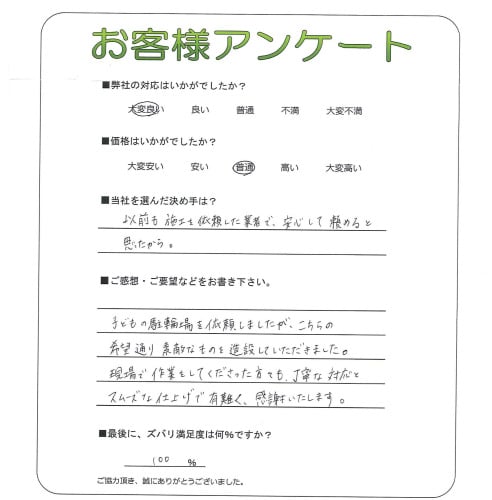 お客様アンケート
■弊社の対応はいかがでしたか？
大変良い 良い 普通 不満 大変不満
■価格はいかがでしたか？
大変安い 安い 普通 高い 大変高い
■当社を選んだ決め手は？
以前も施工を依頼した業者で、安心して頼めると
思ったから。
■ご感想・ご要望などをお書き下さい。
子どもの駐輪場を依頼しましたが、こちらの
希望通り素敵なものを造設していただきました。
現場で作業をしてくださった方々も、丁寧な対応と
スムーズな仕上げで有難く、感謝いたします。
■最後に、ズバリ満足度は何%ですか？
100 %
ご協力頂き、誠にありがとうございました。